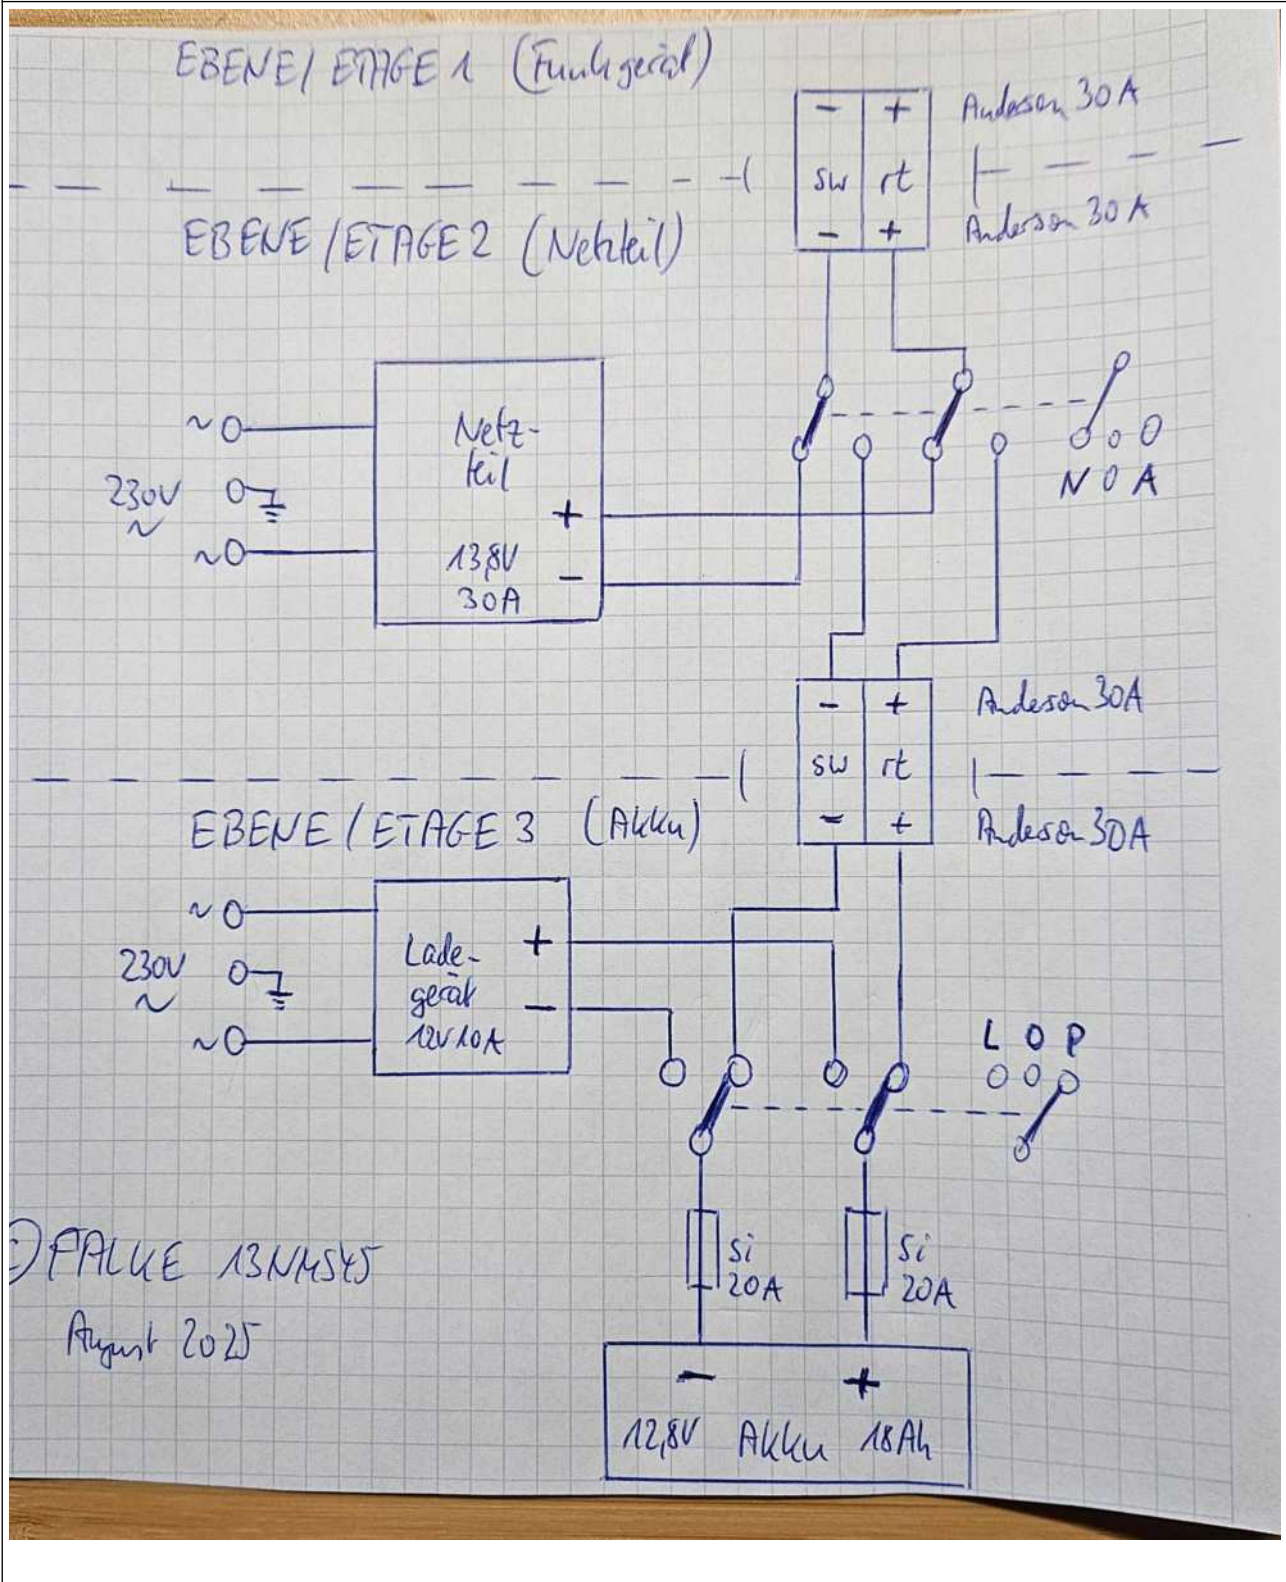 EBENE/ ETAGE 1 (Funkgerät)
- +
Anderson 30A
sw rt
- +
Anderson 30A
EBENE/ETAGE 2 (Netzteil)
~
230V
~
~
Netz-
teil
+
13,8V
-
30A
N O A
- +
Anderson 30A
sw rt
- +
Anderson 30A
EBENE/ETAGE 3 (Akku)
~
230V
~
~
Lade-
gerät
12V 10A
+
-
L O P
Si
20A
Si
20A
- +
12,8V Akku 18Ah
© FALKE 13NM545
August 2025